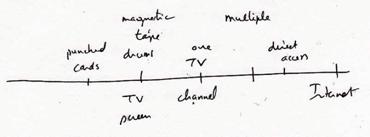 magnetic
tape
multiple
punched
cards
drums
one
TV
direct
access
TV
screen
channel
Internet